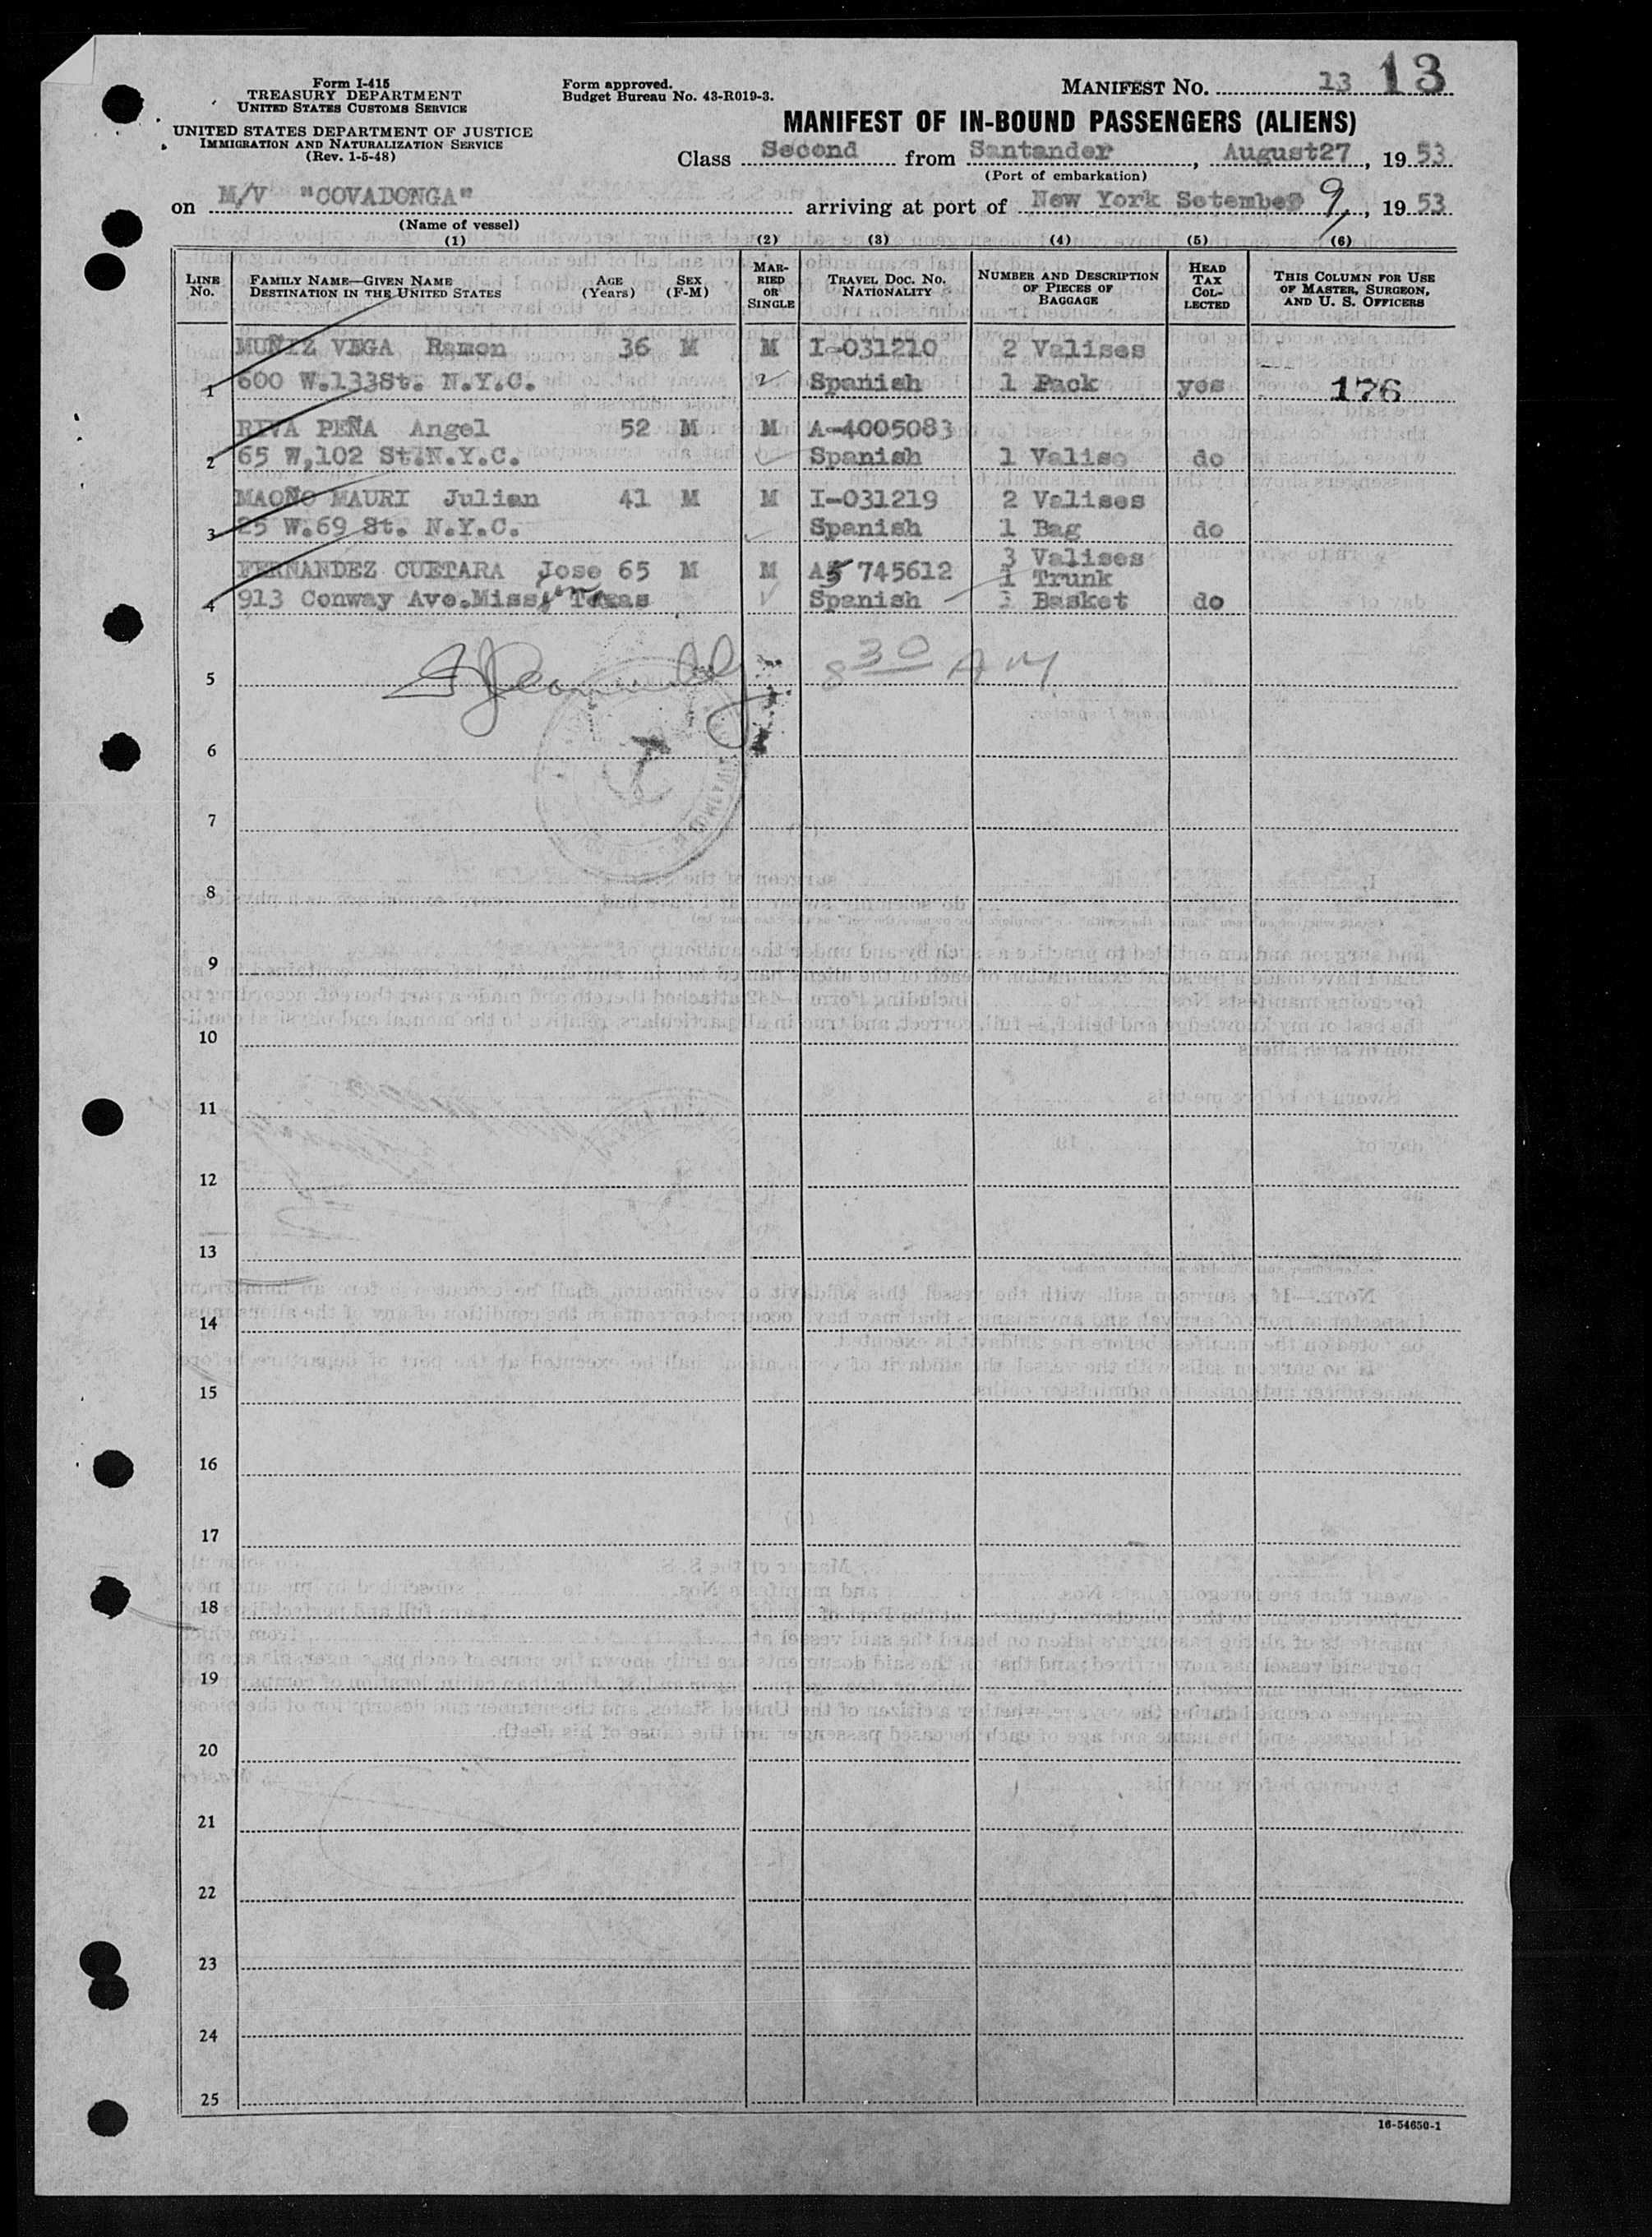 Form I-415
TREASURY DEPARTMENT
UNITED STATES CUSTOMS SERVICE
UNITED STATES DEPARTMENT OF JUSTICE
IMMIGRATION AND NATURALIZATION SERVICE
(Rev. 1-5-48)
Form approved.
Budget Bureau No. 43-R019-3.
MANIFEST NO. 13 13
MANIFEST OF IN-BOUND PASSENGERS (ALIENS)
Class Second from Santander, August27, 1953
(Port of embarkation)
on M/V "COVADONGA" arriving at port of New York Setember 9, 1953
(Name of vessel)
(1) (2) (3) (4) (5) (6)
LINE NO.
FAMILY NAME—GIVEN NAME AGE SEX
DESTINATION IN THE UNITED STATES (Years) (F-M)
MARRIED OR SINGLE
TRAVEL DOC. NO. NATIONALITY
NUMBER AND DESCRIPTION OF PIECES OF BAGGAGE
HEAD TAX COLLECTED
THIS COLUMN FOR USE OF MASTER, SURGEON, AND U. S. OFFICERS
MUÑIZ VEGA Ramon 36 M M I-031210 2 Valises
1 600 W.133St. N.Y.C. Spanish 1 Pack yes 176
RIVA PEÑA Angel 52 M M A-4005083
2 65 W,102 St.N.Y.C. Spanish 1 Valise do
MAOÑO MAURI Julian 41 M M I-031219 2 Valises
3 25 W.69 St. N.Y.C. Spanish 1 Bag do
3 Valises
FERNANDEZ CUETARA Jose 65 M M A5 745612 1 Trunk
4 913 Conway Ave.Mission Texas Spanish Basket do
5 8 30 AM
6
7
8
9
10
11
12
13
14
15
16
17
18
19
20
21
22
23
24
25
16-54650-1